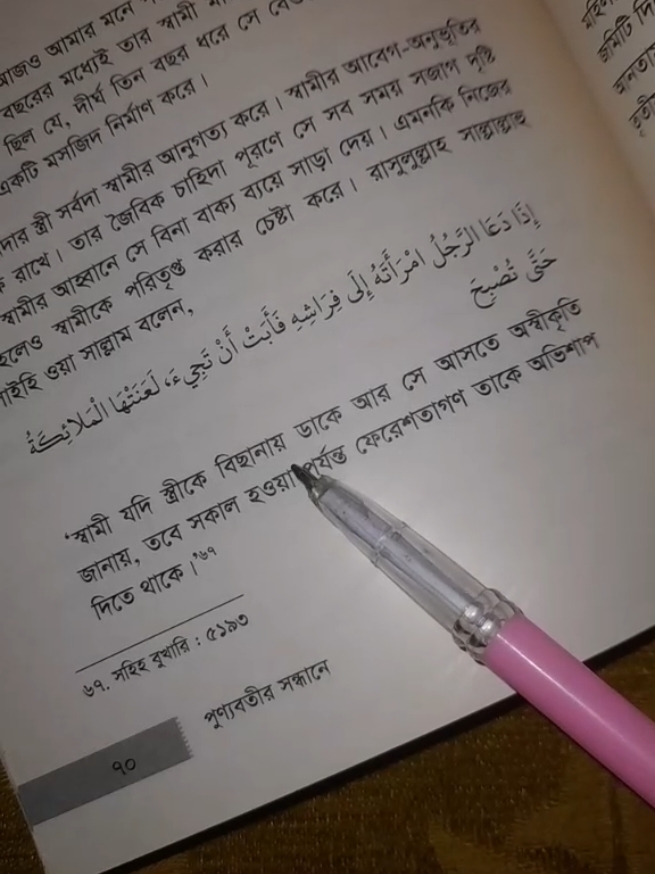 আজও আমার মনে
বছরের মধ্যেই তার স্বামী
ছিল যে, দীর্ঘ তিন বছর ধরে সে
একটি মসজিদ নির্মাণ করে।
দার স্ত্রী সর্বদা স্বামীর আনুগত্য করে। স্বামীর আবেগ-অনুভূতির
রাখে। তার জৈবিক চাহিদা পূরণে সে সব সময় সজাগ দৃষ্টি
স্বামীর আহ্বানে সে বিনা বাক্য ব্যয়ে সাড়া দেয়। এমনকি নিজের
হলেও স্বামীকে পরিতৃপ্ত করার চেষ্টা করে। রাসুলুল্লাহ সাল্লাল্লাহু
লাইহি ওয়া সাল্লাম বলেন,
إِذَا دَعَا الرَّجُلُ امْرَأَتَهُ إِلَى فِرَاشِهِ فَأَبَتْ أَنْ تَجِيءَ، لَعَنَتْهَا الْمَلَائِكَةُ
حَتَّى تُصْبِحَ
‘স্বামী যদি স্ত্রীকে বিছানায় ডাকে আর সে আসতে অস্বীকৃতি
জানায়, তবে সকাল হওয়া পর্যন্ত ফেরেশতাগণ তাকে অভিশাপ
দিতে থাকে।’৬৭
৬৭. সহিহ বুখারি : ৫১৯৩
৭০
পুণ্যবতীর সন্ধানে